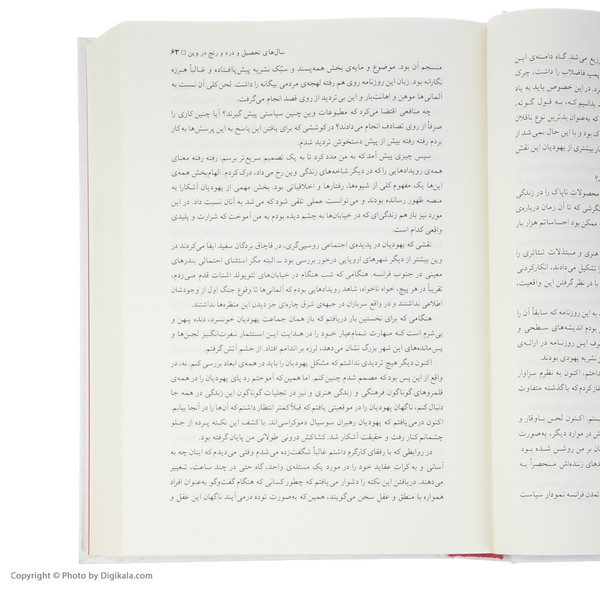 سال‌های تحصیل و درد و رنج در وین □ ۶۳
منسجم آن بود. موضوع و مایه‌ی بخش همه‌پسند و سبُک نشریه پیش‌پاافتاده و غالباً هرزه
نگارانه بود. زبان این روزنامه روی هم رفته لهجه‌ی مردمی بیگانه را داشت. لحن کلی آن نسبت به
آلمانی‌ها موهن و اهانت‌بار و این بی‌تردید از روی قصد انجام می‌گرفت.
چه منافعی اقتضا می‌کرد که مطبوعات وین چنین سیاستی پیش گیرند؟ آیا چنین کاری را
صرفاً از روی تصادف انجام می‌دادند؟ در کوششی که برای یافتن این پاسخ به این پرسش‌ها به کار
بردم رفته رفته بیش از پیش دستخوش تردید شدم.
سپس چیزی پیش آمد که به من مدد کرد تا به یک تصمیم سریع‌تر برسم. رفته رفته معنای
همه‌ی رویدادهایی را که در دیگر شاخه‌های زندگی وین رخ می‌داد، درک کردم. الهام‌بخش همه‌ی
این‌ها یک مفهوم کلی از شیوه‌ها، رفتارها و اخلاقیاتی بود. بخش مهمی از یهودیان آشکارا به
منصه ظهور رسانده بودند و می‌توانست عملی تلقی شود که می‌شد به آنان نسبت داد. در این
مورد نیز باز هم زندگی‌ای که در خیابان‌ها به چشم دیده بودم به من آموخت که شرارت و پلیدی
واقعی کدام است.
نقشی که یهودیان در پدیده‌ی اجتماعی روسپی‌گری، در قاچاق بردگان سفید ایفا می‌کردند در
وین بیشتر از دیگر شهرهای اروپایی درخور بررسی بود ــ البته مگر استثنای احتمالی بندرهای
معینی در جنوب فرانسه. هنگامی که شب هنگام در خیابان‌های لئوپولد اشتات قدم می‌زدم،
تقریباً در هر پیچ، خواه ناخواه، شاهد رویدادهایی بودم که آلمانی‌ها تا وقوع جنگ اول از وجودشان
اطلاعی نداشتند و در واقع سربازان در جبهه‌ی شرق چاره‌ای جز دیدن این منظره‌ها نداشتند.
هنگامی که برای نخستین بار دریافتم که باز همان جماعت یهودیان خونسرد، دنده پهن و
بی‌شرم است که مهارت تمام‌عیار خود را در هدایت این استثمار نفرت‌انگیز لجن‌ها و
پس‌مانده‌های این شهر بزرگ نشان می‌دهد، لرزه بر اندامم افتاد. از خشم آتش گرفتم.
اکنون دیگر هیچ تردیدی نداشتم که مشکل یهودیان را باید در همه‌ی ابعاد بررسی کنم. نه، در
واقع از این پس بود که مصمم شدم چنین کنم. اما همین که آموختم رد پای یهودیان را در همه‌ی
قلمروهای گوناگون فرهنگی و زندگی هنری و نیز در تجلیات گوناگون این زندگی در همه جا
دنبال کنم، ناگهان یهودیان را در موقعیتی یافتم که قبلاً کمتر انتظار داشتم که آن‌ها را در آنجا بیابم.
اکنون درمی‌یافتم که یهودیان رهبران سوسیال دموکراسی‌اند. با کشف این نکته پرده از جلو
چشمانم کنار رفت و حقیقت آشکار شد. کشاکش درونی طولانی من پایان گرفته بود.
در روابطی که با رفقای کارگرم داشتم غالباً شگفت‌زده می‌شدم وقتی می‌دیدم که اینان چه به
آسانی و به کرات عقاید خود را در مورد یک مسئله‌ی واحد، گاه حتی در چند ساعت، تغییر
می‌دهند. دریافتن این نکته را دشوار می‌یافتم که چطور کسانی که هنگام گفت‌وگو به‌عنوان افراد
همواره با منطق و عقل سخن می‌گویند، همین که به‌صورت توده درمی‌آیند ناگهان این عقل و
زیع می‌شد. گاه دامنه‌ی این
پمپ فاضلاب را داشت، چرک
د. در این خصوص باید به یاد
که به‌عنوان بدترین نوع ناقلان
بود و با این حال نمی‌شد از
ار بیشتری از یهودیان این نقش
محصولات ناپاک را در زندگی
نگرشی که تا آن زمان درباره‌ی
ممکن بود احساساتم هزار بار
هنری و مبتذلات تئاتری را
را تشکیل می‌دادند، انکارکردنی
با در نظر گرفتن این واقعیت،
به این روزنامه که سابقاً آن را
بودم اندیشه‌های سطحی و
رف این روزنامه در ارائه‌ی
نشریه یهودی بودند.
داختم، اکنون به نظرم سزاوار
زارم کردم که با گذشته متفاوت
ستم. اکنون لحن باوقار و
در موارد دیگر، به‌صورت
ن بر من روشن شده بود.
دهای زننده‌اش منحصراً به
تمدن فرانسه نمودار سیاست
Copyright © Photo by Digikala.com